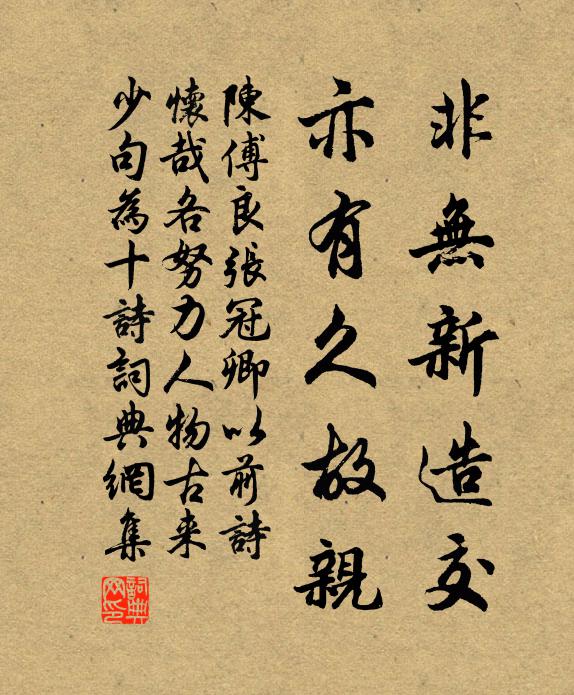 非無新造交
亦有久故親
陳傅良張冠卿以前詩
懷哉各努力人物古来
少句為十詩詞典網集
詞典
网印